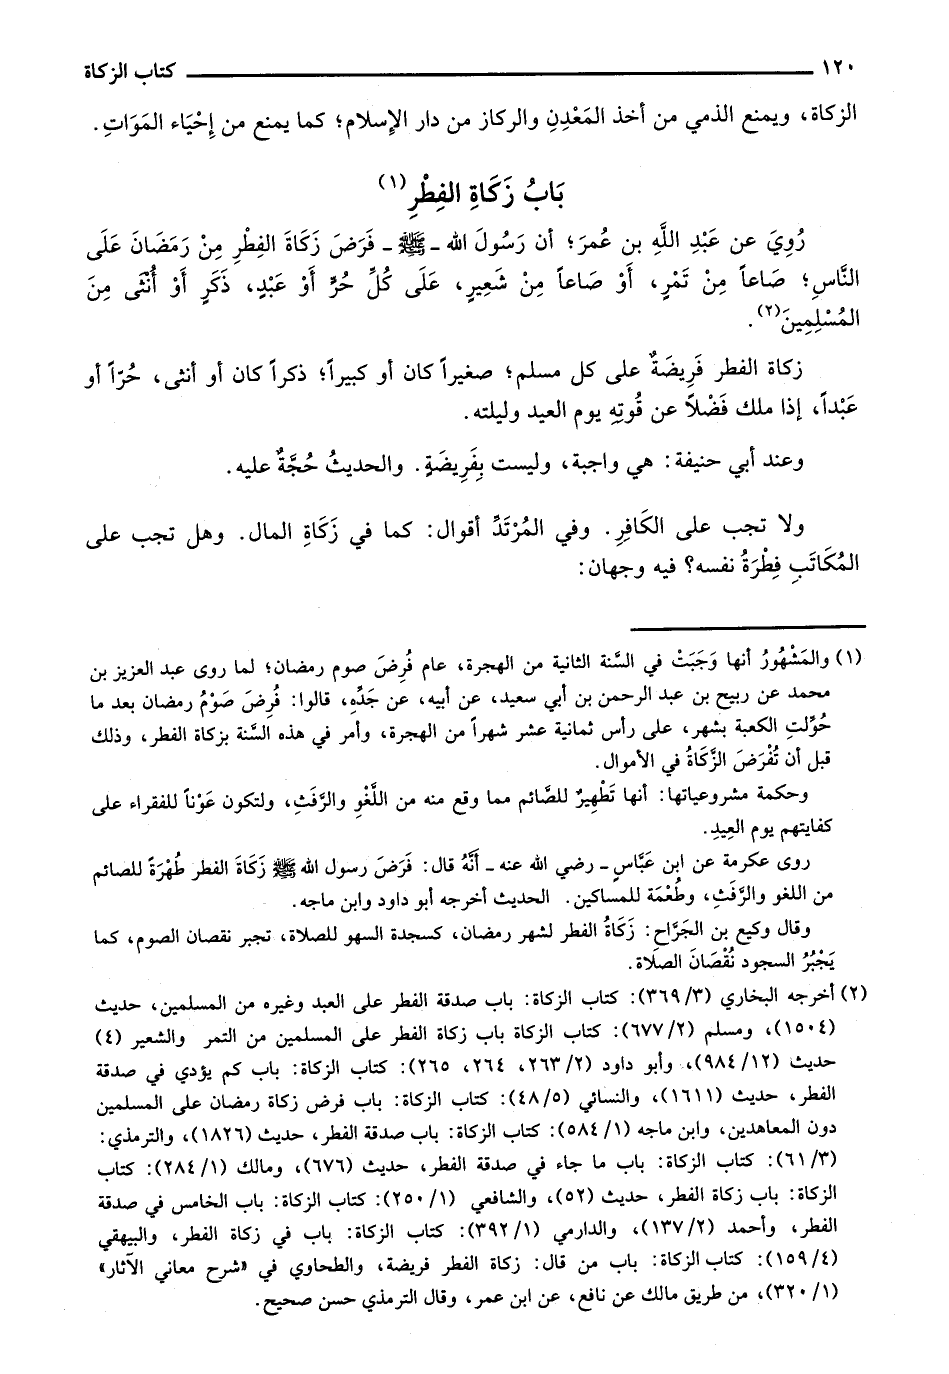 ١٢٠ كتاب الزكاة
الزكاة، ويمنع الذمي من أخذ المَعْدِنِ والركاز من دار الإسلام؛ كما يمنع من إِحْيَاء المَوَاتِ.
بَابُ زَكَاةِ الفِطْرِ(١)
رُوِيَ عن عَبْدِ اللَّهِ بن عُمرَ؛ أن رَسُولَ الله ـ ﷺ ـ فَرَضَ زَكَاةَ الفِطْرِ مِنْ رَمَضَانَ عَلَى
النَّاسِ؛ صَاعاً مِنْ تَمْرٍ، أَوْ صَاعاً مِنْ شَعِيرٍ، عَلَى كُلِّ حُرٍّ أَوْ عَبْدٍ، ذَكَرٍ أَوْ أُنْثَى مِنَ
المُسْلِمِينَ(٢).
زكاة الفطر فَرِيضَةٌ على كل مسلم؛ صغيراً كان أو كبيراً؛ ذكراً كان أو أنثى، حُرّاً أو
عَبْداً، إذا ملك فَضْلاً عن قُوتِهِ يوم العيد وليلته.
وعند أبي حنيفة: هي واجبة، وليست بِفَرِيضَةٍ. والحديثُ حُجَّةٌ عليه.
ولا تجب على الكَافِرِ. وفي المُرْتَدِّ أقوال: كما في زَكَاةِ المال. وهل تجب على
المُكَاتَبِ فِطْرَةُ نفسه؟ فيه وجهان:
(١) والمَشْهُورُ أنها وَجَبَتْ في السَّنة الثانية من الهجرة، عام فُرِضَ صوم رمضان؛ لما روى عبد العزيز بن
محمد عن ربيح بن عبد الرحمن بن أبي سعيد، عن أبيه، عن جَدِّهِ، قالوا: فُرِضَ صَوْمُ رمضان بعد ما
حُوِّلَتِ الكعبة بشهر، على رأس ثمانية عشر شهراً من الهجرة، وأمر في هذه السَّنة بزكاة الفطر، وذلك
قبل أن تُفْرَضَ الزَّكَاةُ في الأموال.
وحكمة مشروعياتها: أنها تَطْهِيرٌ للصَّائم مما وقع منه من اللَّغْوِ والرَّفَثِ، ولتكون عَوْناً للفقراء على
كفايتهم يوم العِيدِ.
روى عكرمة عن ابن عَبَّاسٍ ـ رضي الله عنه ـ أَنَّهُ قال: فَرَضَ رسول الله ﷺ زَكَاةَ الفطر طُهْرَةً للصائم
من اللغو والرَّفَثِ، وطُعْمَة للمساكين. الحديث أخرجه أبو داود وابن ماجه.
وقال وكيع بن الجَرَّاح: زَكَاةُ الفطر لشهر رمضان، كسجدة السهو للصلاة، تجبر نقصان الصوم، كما
يَجْبُرُ السجود نُقْصَانَ الصلَاة.
(٢) أخرجه البخاري (٣/ ٣٦٩): كتاب الزكاة: باب صدقة الفطر على العبد وغيره من المسلمين، حديث
(١٥٠٤)، ومسلم (٢/ ٦٧٧): كتاب الزكاة باب زكاة الفطر على المسلمين من التمر والشعير (٤)
حديث (١٢/ ٩٨٤)، وأبو داود (٢/ ٢٦٣، ٢٦٤، ٢٦٥): كتاب الزكاة: باب كم يؤدي في صدقة
الفطر، حديث (١٦١١)، والنسائي (٥/ ٤٨): كتاب الزكاة: باب فرض زكاة رمضان على المسلمين
دون المعاهدين، وابن ماجه (١/ ٥٨٤): كتاب الزكاة: باب صدقة الفطر، حديث (١٨٢٦)، والترمذي:
(٣/ ٦١): كتاب الزكاة: باب ما جاء في صدقة الفطر، حديث (٦٧٦)، ومالك (١/ ٢٨٤): كتاب
الزكاة: باب زكاة الفطر، حديث (٥٢)، والشافعي (١/ ٢٥٠): كتاب الزكاة: باب الخامس في صدقة
الفطر، وأحمد (٢/ ١٣٧)، والدارمي (١/ ٣٩٢): كتاب الزكاة: باب في زكاة الفطر، والبيهقي
(٤/ ١٥٩): كتاب الزكاة: باب من قال: زكاة الفطر فريضة، والطحاوي في «شرح معاني الآثار»
(١/ ٣٢٠)، من طريق مالك عن نافع، عن ابن عمر، وقال الترمذي حسن صحيح.